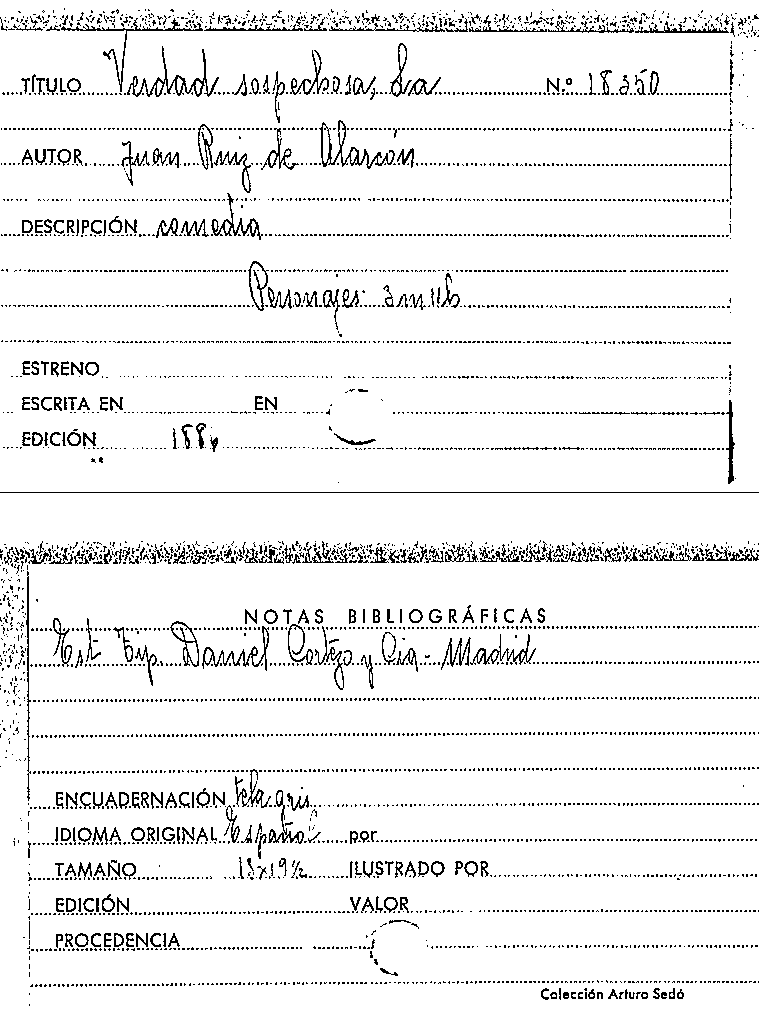 TÍTULO Verdad sospechosa, La N.º 18350
AUTOR Juan Ruiz de Alarcón
DESCRIPCIÓN comedia
Personajes: 3m 11h
ESTRENO
ESCRITA EN EN
EDICIÓN 1884
NOTAS BIBLIOGRÁFICAS
Est Tip. Daniel Cortezo y Cia - Madrid
ENCUADERNACIÓN tela gris
IDIOMA ORIGINAL Español por
TAMAÑO 13x19½ ILUSTRADO POR
EDICIÓN VALOR
PROCEDENCIA
Colección Arturo Sedó